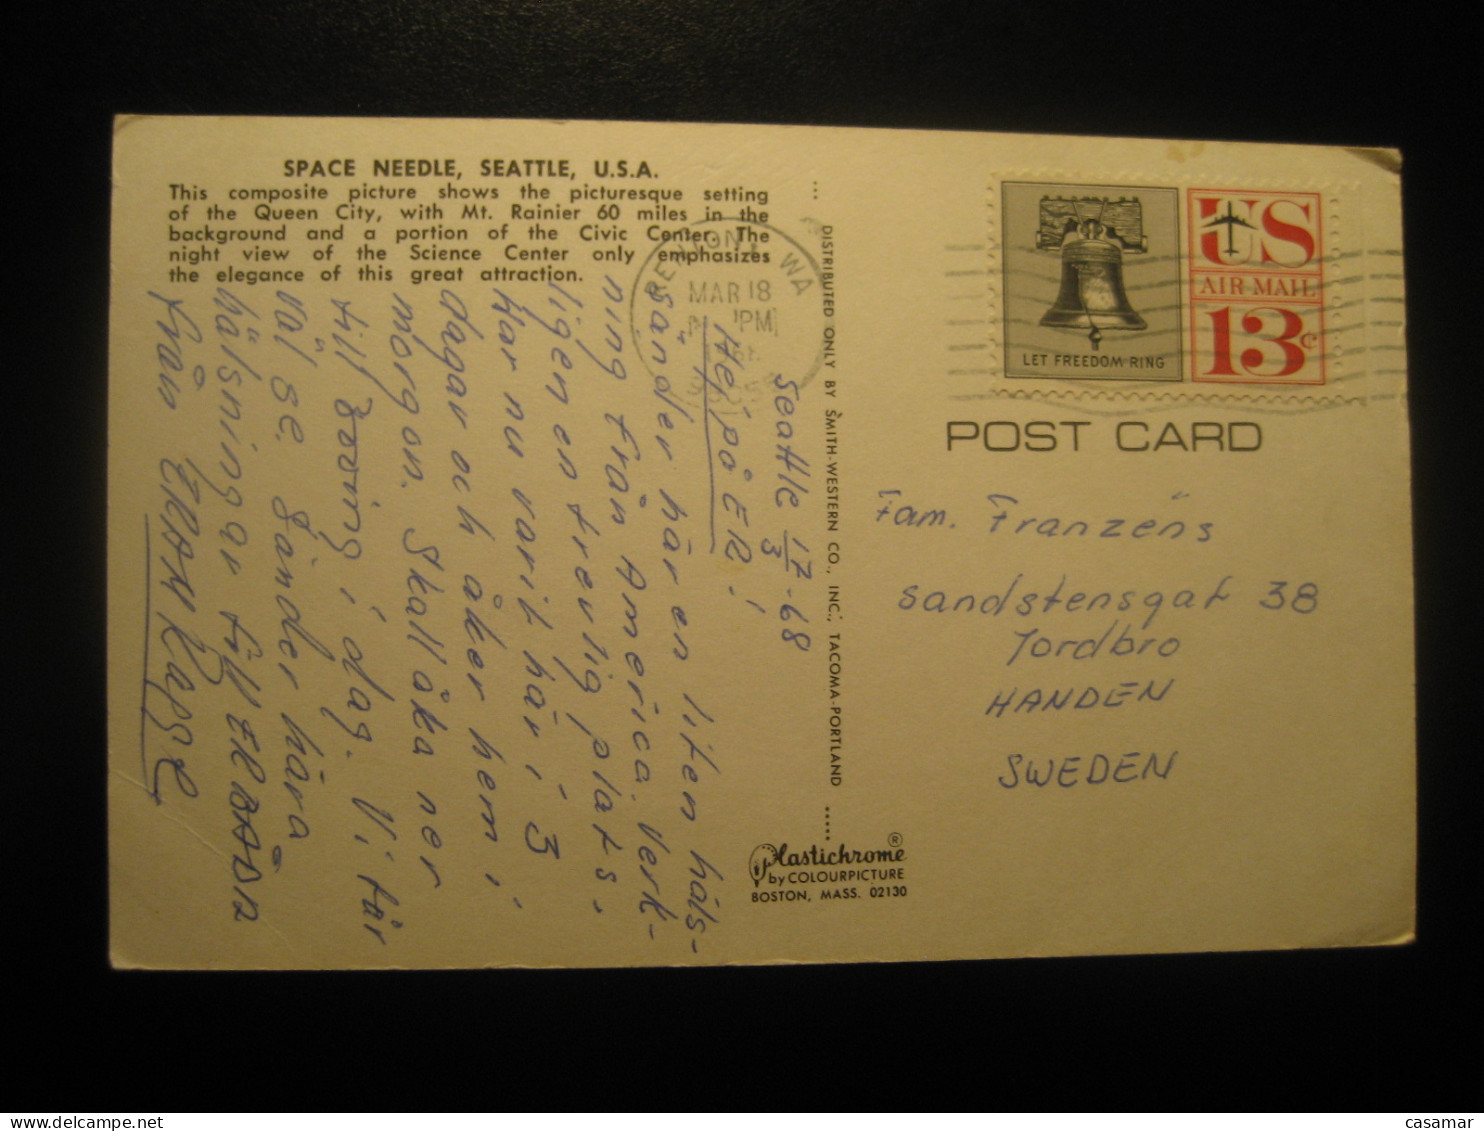 SPACE NEEDLE, SEATTLE, U.S.A.
This composite picture shows the picturesque setting
of the Queen City, with Mt. Rainier 60 miles in the
background and a portion of the Civic Center. The
night view of the Science Center only emphasizes
the elegance of this great attraction.
RENTON, WA
MAR 18
PM
Seattle 17/3-68
Hej på ER!
Sänder här en liten häls-
ning från America. Verk-
ligen en trevlig plats.
Har nu varit här i 3
dagar och åker hem i
morgon. Skall åka ner
till Boeing i dag. Vi får
väl se. Sänder hära
hälsningar till ER BÅDA
från ERAN Ragge
DISTRIBUTED ONLY BY SMITH-WESTERN CO., INC., TACOMA-PORTLAND
Plastichrome ®
by COLOURPICTURE
BOSTON, MASS. 02130
LET FREEDOM RING
US
AIR MAIL
13c
POST CARD
Fam. Franzéns
Sandstensgat 38
Jordbro
HANDEN
SWEDEN
casamar
delcampe.net